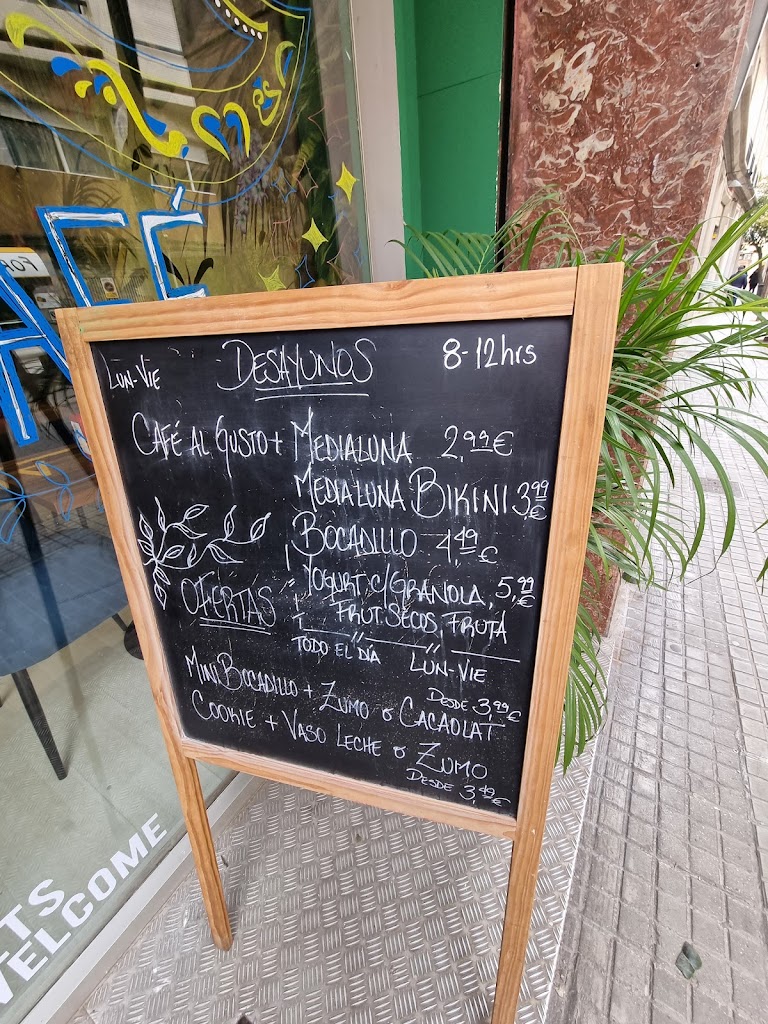 FÉ
LUN-VIE DESAYUNOS 8-12hrs
CAFÉ AL GUSTO + MEDIALUNA 2,99€
MEDIALUNA BIKINI 3,99€
BOCADILLO 4,49€
YOGURT C/GRANOLA, 5,99€
FRUT.SECOS, FRUTA
OFERTAS
TODO EL DÍA LUN-VIE
MINI BOCADILLO + ZUMO o CACAOLAT DESDE 3,99€
COOKIE + VASO LECHE o ZUMO
DESDE 3,49€
WELCOME